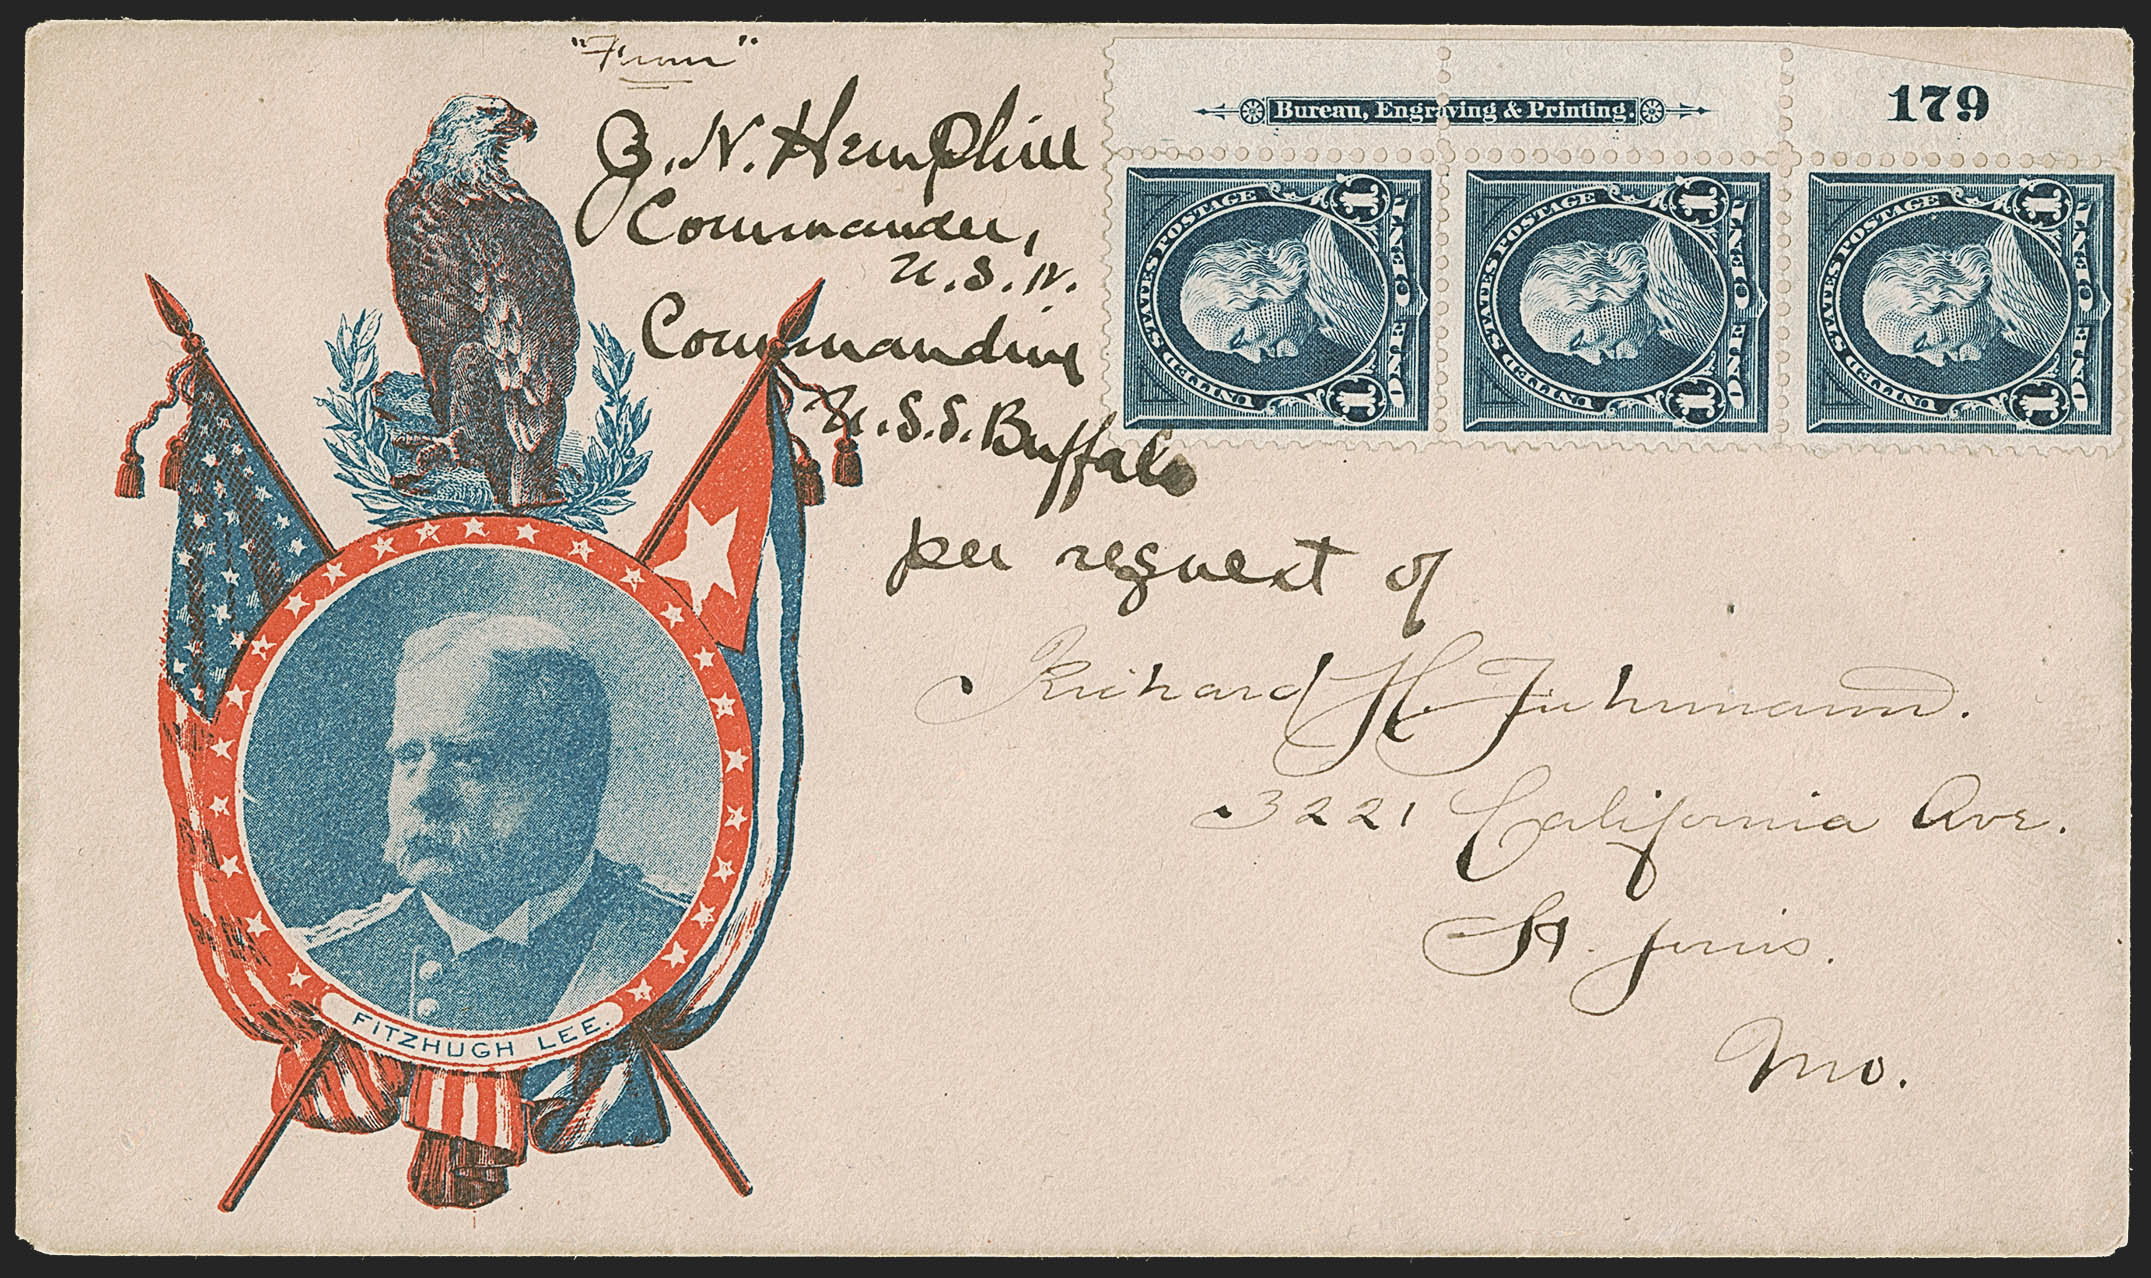 "From"
J. N. Hemphill
Commander,
U.S.N.
Commanding
U.S.S. Buffalo
per request of
Richard H. Fuhrmann.
3221 California Ave.
St. Louis.
Mo.
Bureau, Engraving & Printing.
179
UNITED STATES POSTAGE
1 ONE CENT ONE 1
UNITED STATES POSTAGE
1 ONE CENT ONE 1
UNITED STATES POSTAGE
1 ONE CENT ONE 1
FITZHUGH LEE.